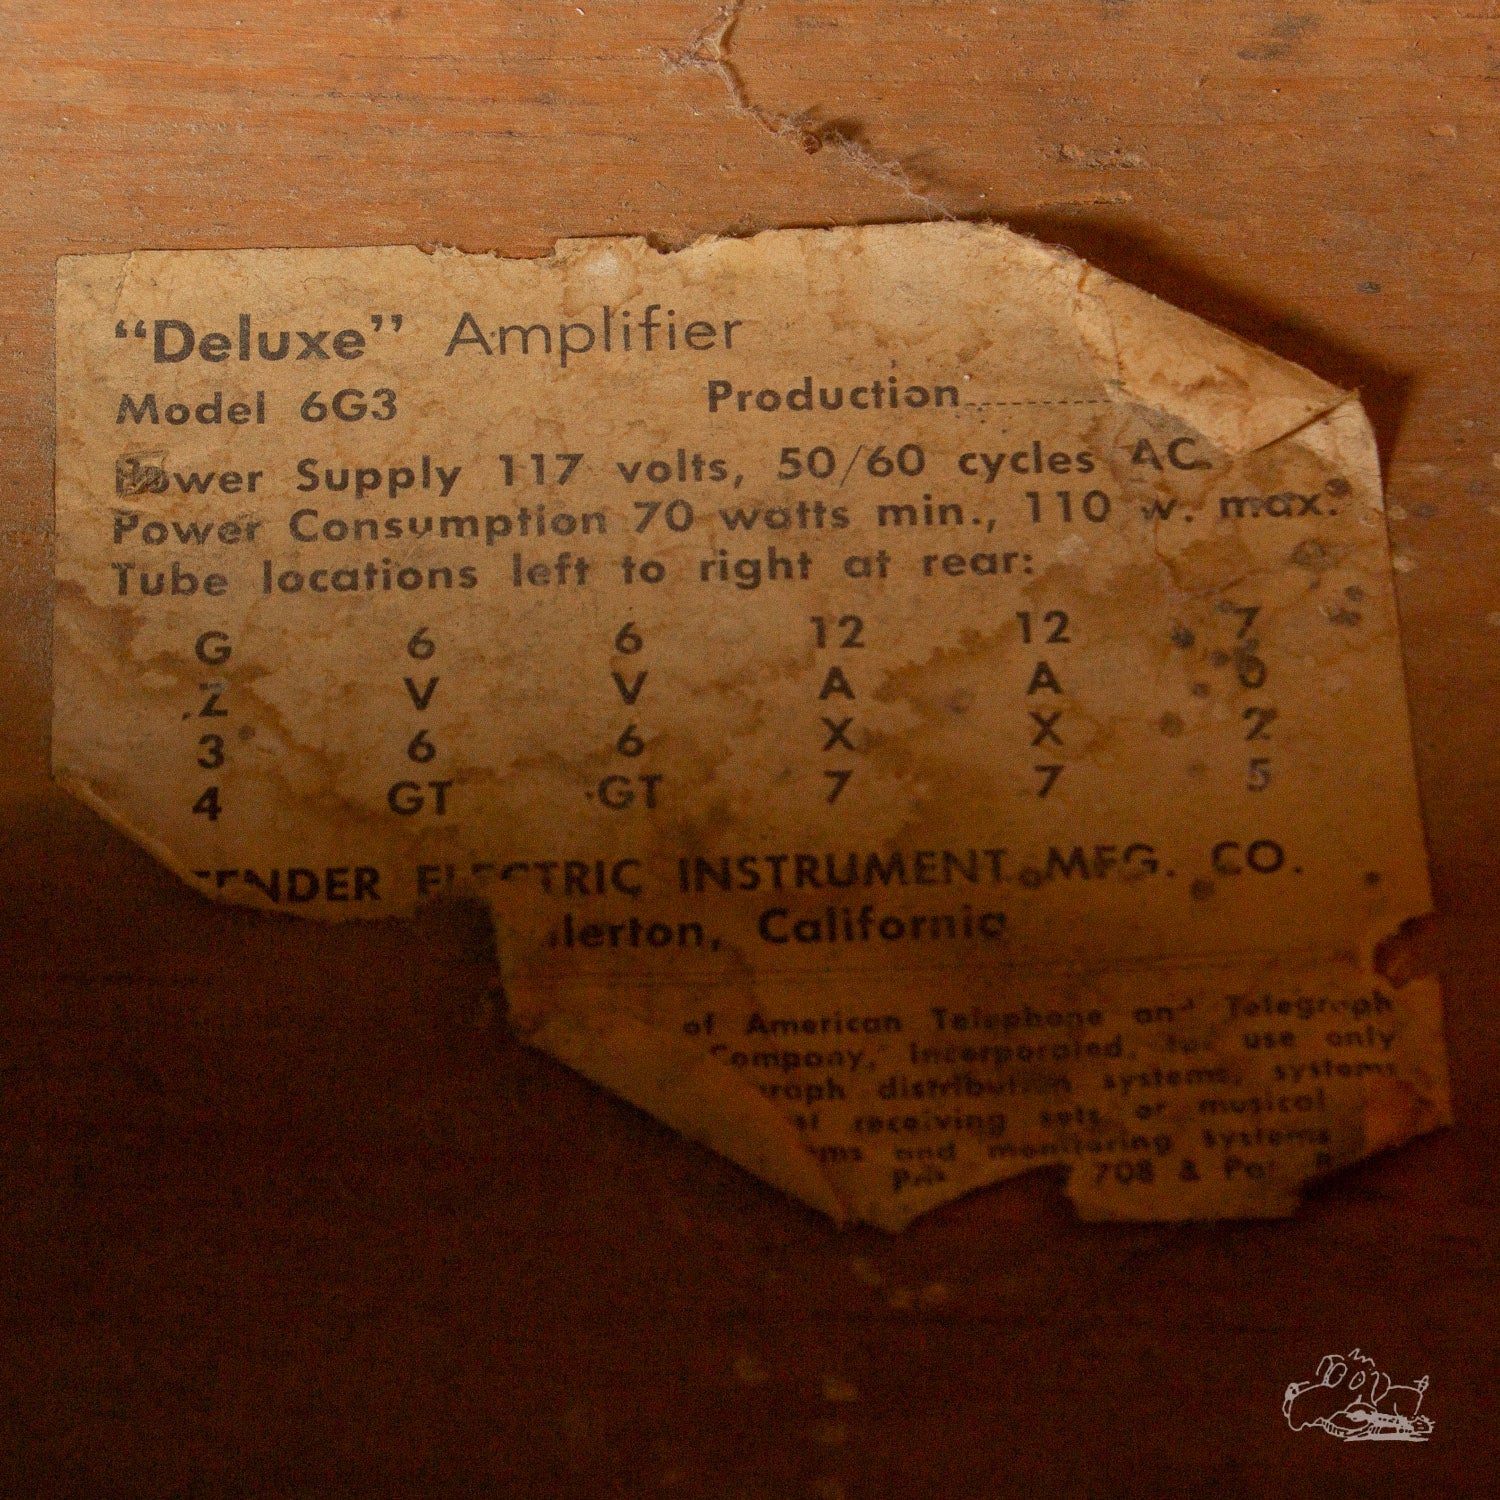 “Deluxe” Amplifier
Model 6G3 Production
Power Supply 117 volts, 50/60 cycles AC.
Power Consumption 70 watts min., 110 w. max.
Tube locations left to right at rear:
G 6 6 12 12 7
Z V V A A 0
3 6 6 X X 2
4 GT GT 7 7 5
FENDER ELECTRIC INSTRUMENT MFG. CO.
llerton, California
of American Telephone and Telegraph
Company, Incorporated, for use only
graph distribution systems, systems
receiving sets or musical
ms and monitoring systems
708 &